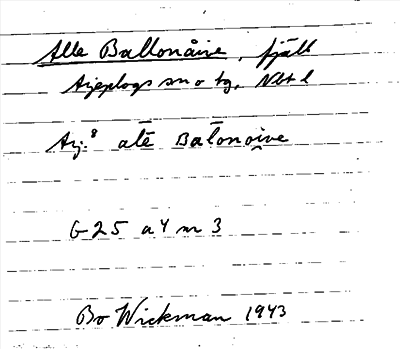 Alle Ballonåive, fjäll
Arjeplogs sn o tg, Nbt l
Arj: alē Bal̄onoi̭ve
G 25 a 4 m 3
Bo Wickman 1943